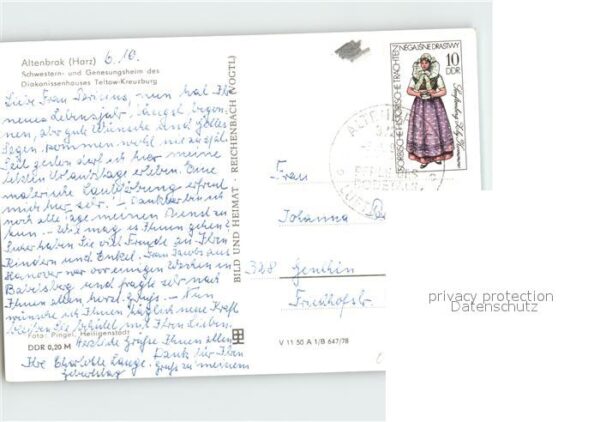 Altenbrak (Harz) 6.10.
Schwestern- und Genesungsheim des
Diakonissenhauses Teltow-Kreuzburg
Liebe Frau nun hat Ihr
neues Lebensjahr, längst begon-
nen, aber gute Wünsche und Gottes
Segen, kommen wohl nie zu spät.
Zeit gerten darf ich hier meine
letzten Urlaubstage erleben. Eine
malerische Laubfärbung erfreut
mich hier sehr. - Dankbar bin ich
noch alle Tage meinen Dienst zu
tun. - Wie mag es Ihnen gehen?
Sicher haben Sie viel Freude an Ihren
Kindern und Enkel. Frau Jacobs aus
Hanover war vor einigen Wochen in
Babelsberg und fragte sehr nach
Ihnen allen herzl. Grüß. - Nun
wünsche ich Ihnen täglich neue Kraft
bleiben Sie behütet mit Ihren Lieben.
Herzliche Grüße Ihnen allen
Foto: Pingel, Heiligenstadt
DDR 0,20 M
Dank für Ihren
Ihre Charlotte Lange. Gruß zu meinem
Geburtstag
BILD UND HEIMAT · REICHENBACH (VOGTL)
V 11 50 A 1/B 647/78
SORBISCHE-HISTORISCHE TRACHTEN
NĚGAJŠNE DRASTWY
10
DDR
ALTEN
Frau
Johanna
328 Genthin
Friedhofstr.
privacy protection
Datenschutz